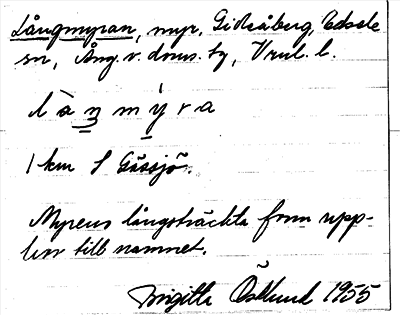 Långmyran, myr, Gideåberg, Edsele
sn, Ång. v. doms. tg, Vrul. l.
l à n m ý r a
1 km S Gåssjö.
Myrens långsträckta form upp-
hov till namnet.
Birgitta Östlund 1955